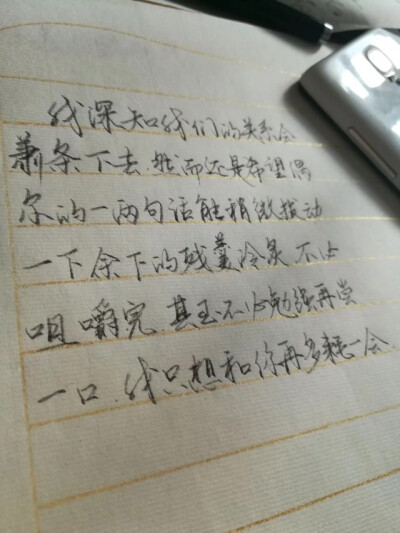 我深知我们的关系会
萧条下去.然而还是希望偶
尔的一两句话能稍微拨动
一下余下的残羹冷炙.不必
咀嚼完.甚至不必勉强再尝
一口.我只想和你再多耗一会.